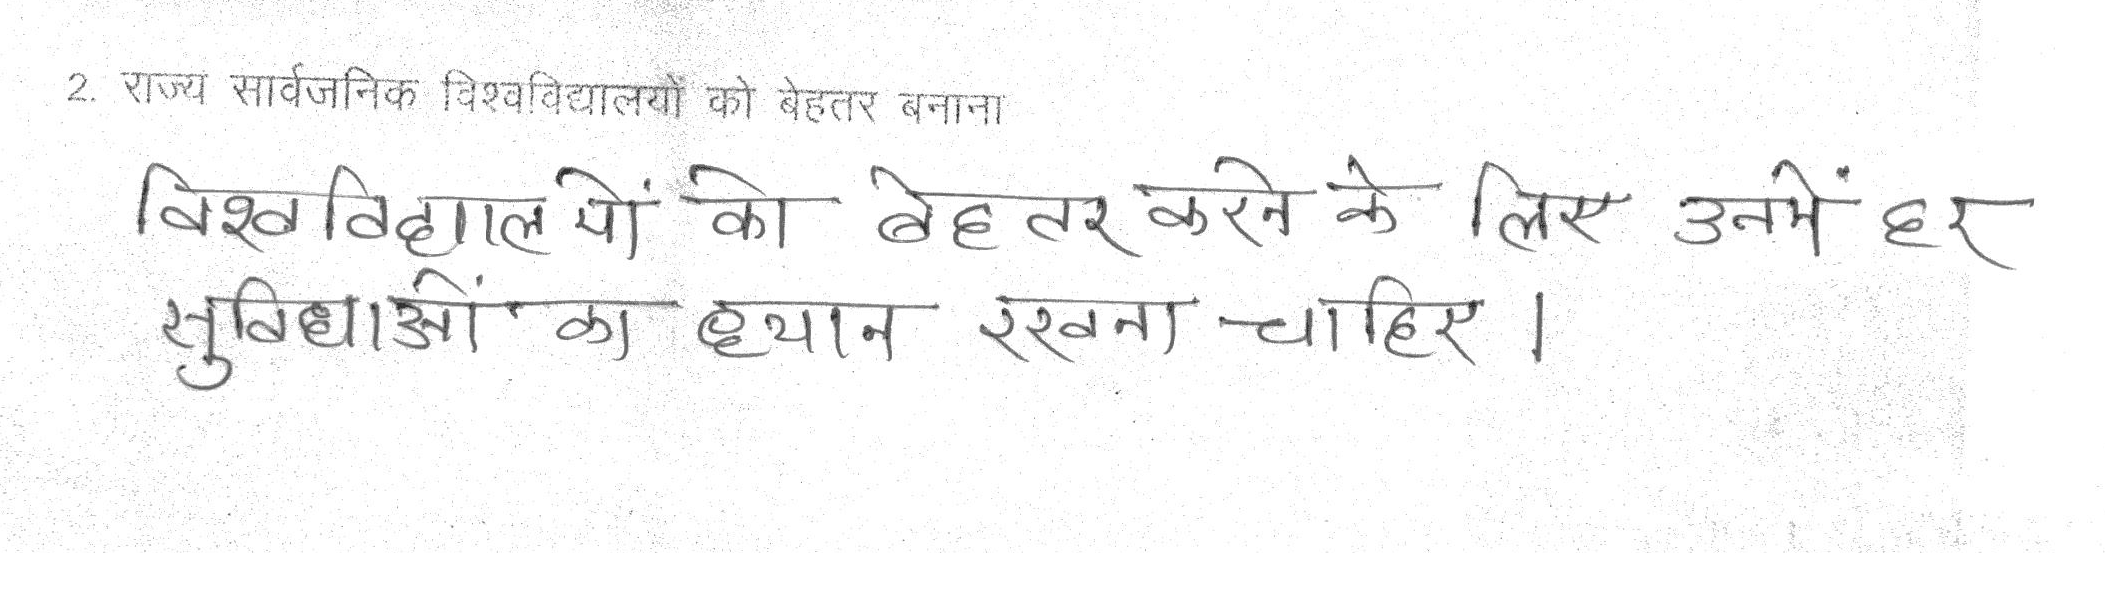 2. राज्य सार्वजनिक विश्वविद्यालयों को बेहतर बनाना
विश्वविद्यालयों को बेहतर करने के लिए उनमें हर
सुविधाओं का ध्यान रखना चाहिए।